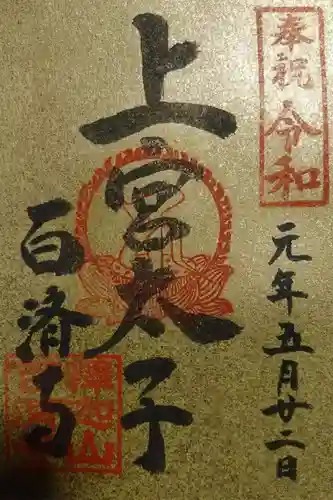 奉祝令和
元年五月廿二日
上宮太子
百済寺